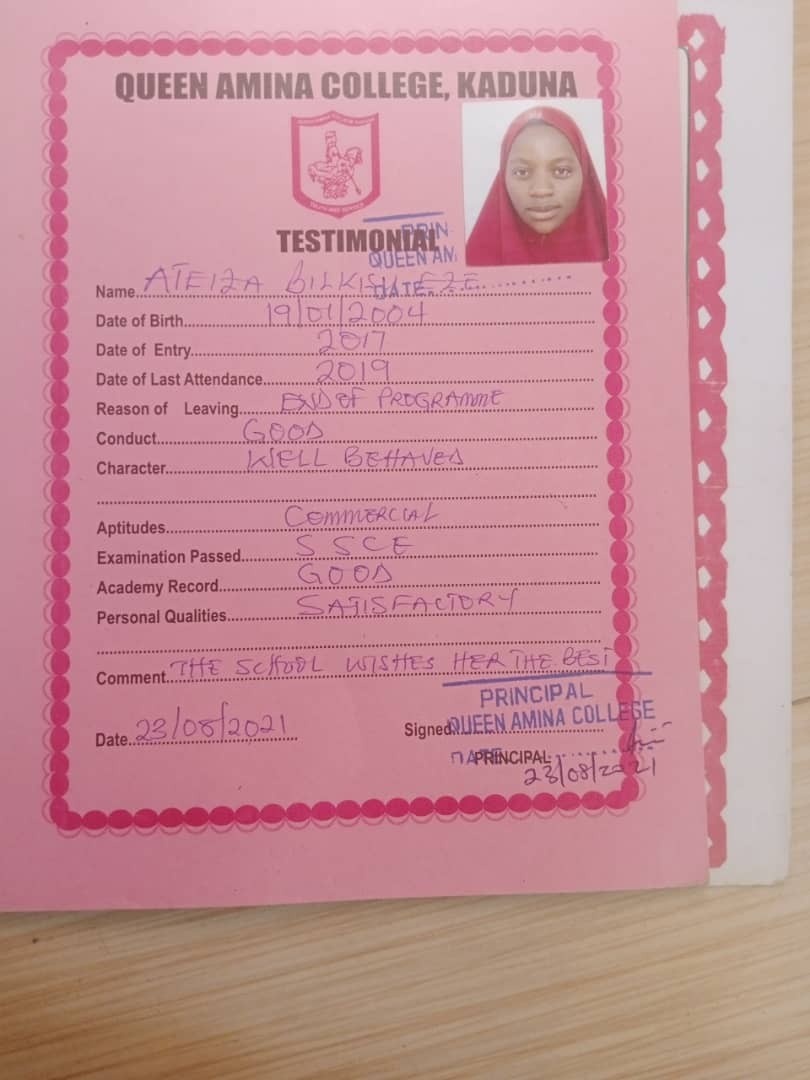 QUEEN AMINA COLLEGE, KADUNA
TESTIMONIAL
PRIN
QUEEN AM
DATE
Name ATEIZA BILKISU EZE
Date of Birth 19/01/2004
Date of Entry 2017
Date of Last Attendance 2019
Reason of Leaving END OF PROGRAMME
Conduct GOOD
Character WELL BEHAVED
Aptitudes COMMERCIAL
Examination Passed SSCE
Academy Record GOOD
Personal Qualities SATISFACTORY
Comment THE SCHOOL WISHES HER THE BEST
PRINCIPAL
QUEEN AMINA COLLEGE
Date 23/08/2021
Signed
DATE
PRINCIPAL
23/08/2021